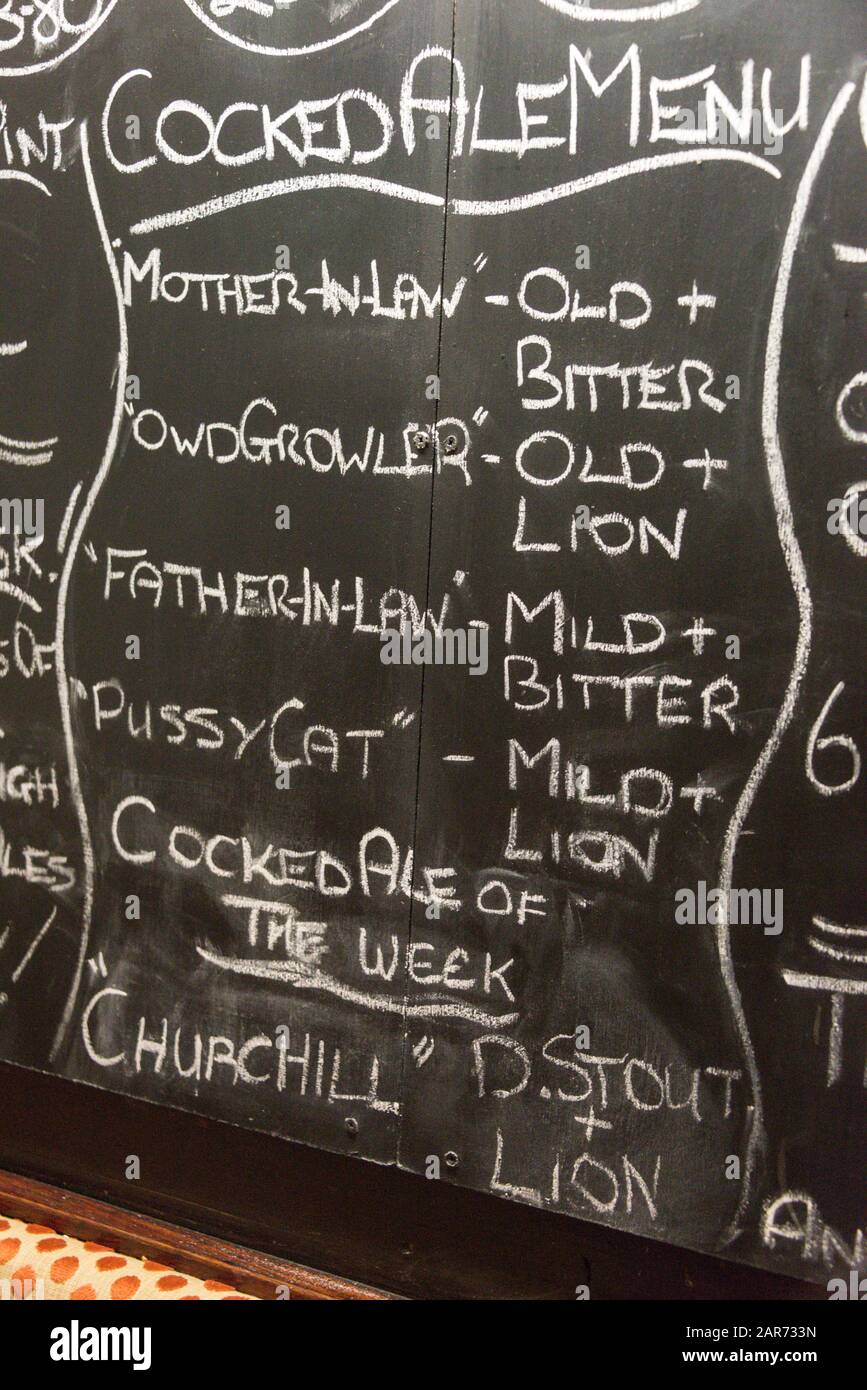 3-80
PINT
COCKED ALE MENU
"MOTHER-IN-LAW" - OLD +
BITTER
"OWD GROWLER" - OLD +
LION
"FATHER-IN-LAW" - MILD +
BITTER
"PUSSY CAT" - MILD +
LION
COCKED ALE OF
THE WEEK
"CHURCHILL" D. STOUT
+
LION
OF
6
AN
alamy
Image ID: 2AR733N
www.alamy.com